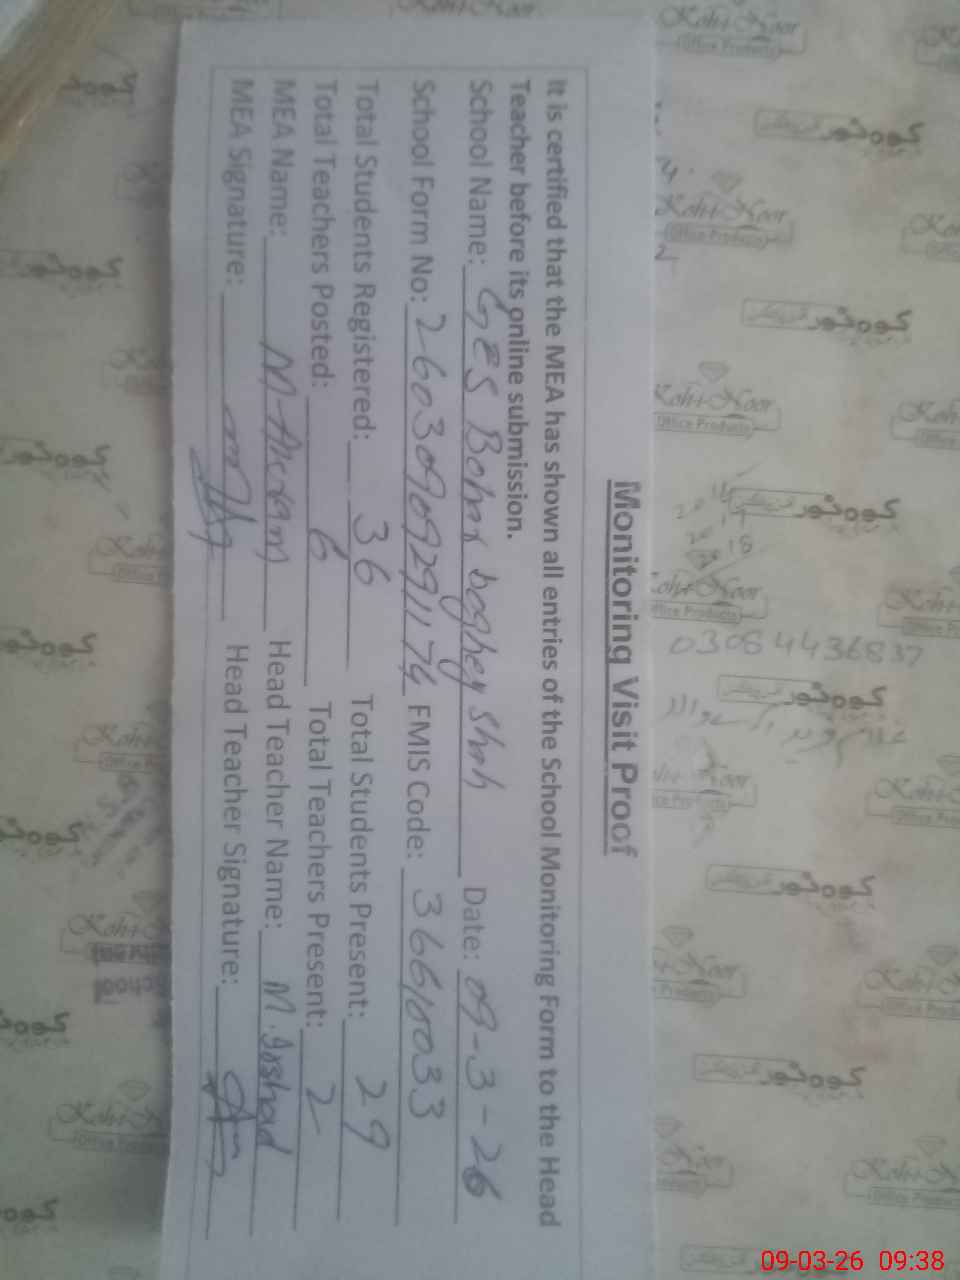 Monitoring Visit Proof
It is certified that the MEA has shown all entries of the School Monitoring Form to the Head
Teacher before its online submission.
School Name: GES Bohar baghey Shah Date: 09-3-26
School Form No: 26030909291174 EMIS Code: 36610033
Total Students Registered: 36 Total Students Present: 29
Total Teachers Posted: 6 Total Teachers Present: 2
MEA Name: M. Akram Head Teacher Name: M. Irshad
MEA Signature: Head Teacher Signature:
Koh-i-Noor
Office Products
کوہ نور
03064436837
09-03-26 09:38